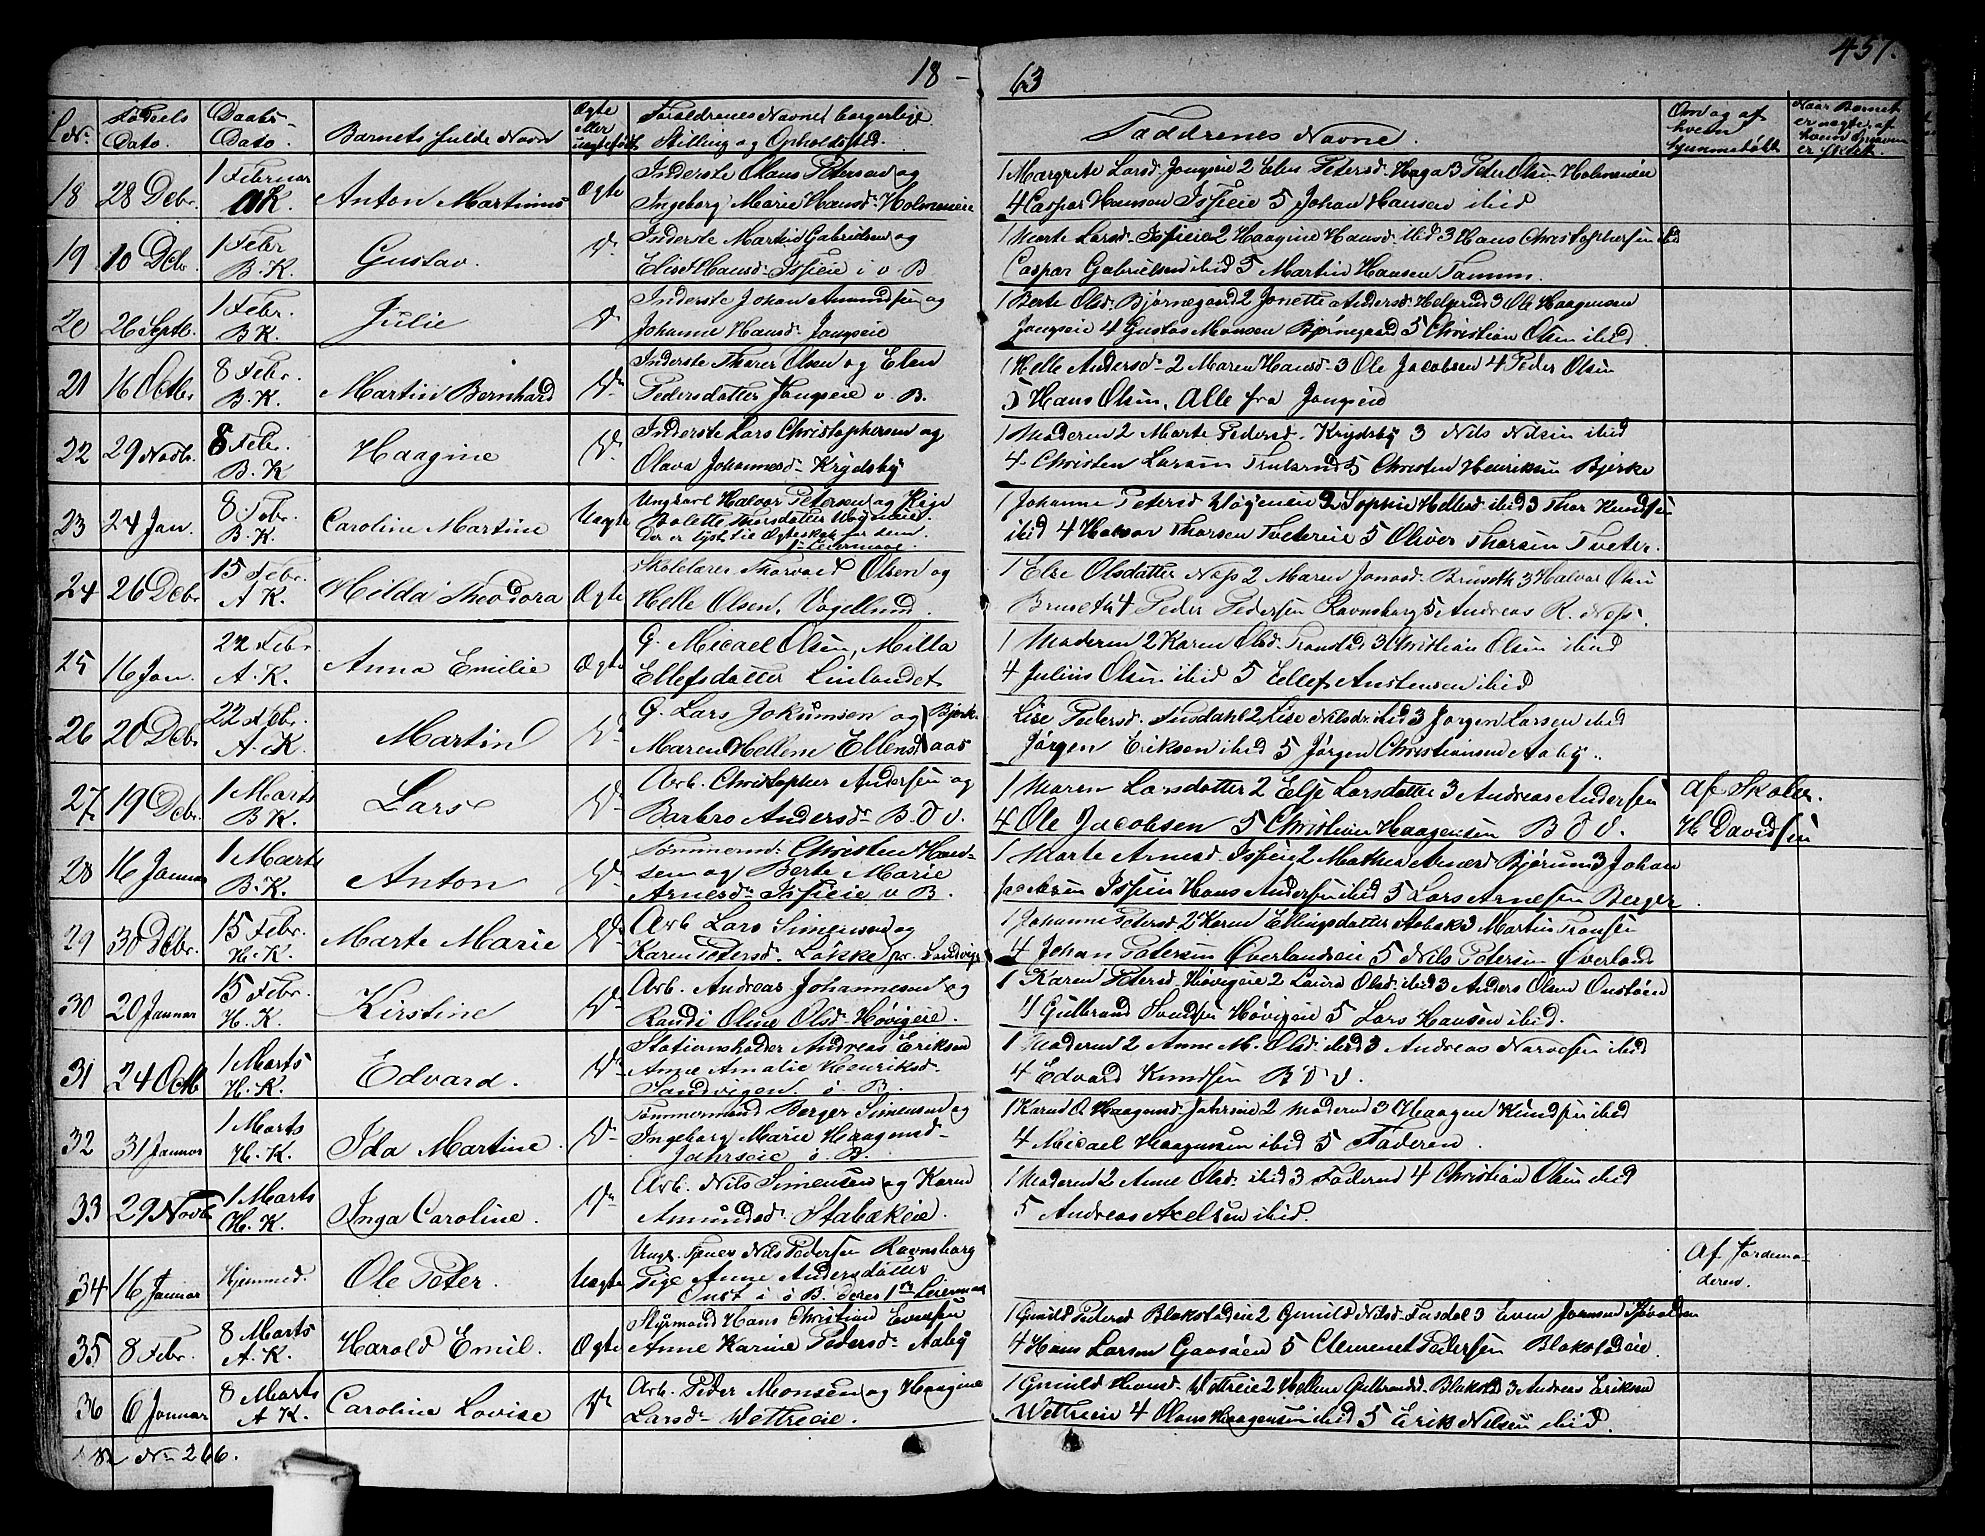 18 - 63
457.
L. No. Fødsels Dato. Daabs- Dato. Barnets fulde Navn Ægte eller uægtefødt Forældrenes Navne borgerlige Stilling og Opholdssted. Faddrenes Navne. Om og af hvem hjemmedøbt Naar Barnet er uægte, af hvem er
18 28 Debr. 1 Februar A K. Anton Martinius Ægte Inderste Olaus Petersen og
Ingeborg Marie Hansd. Holmeneie
1 Margrete Larsd. Jongseie 2 Elen Petersd. Haga 3 Peter Olsen Holmeneie
4 Caspar Hansen Ispieie 5 Johan Hansen ibid
19 10 Debr. 1 Febr B. K. Gustav. Do Inderste Martin Gabrielsen og
Elise Hansd. Ispieie i v B
1 Marte Larsd. Ispieie 2 Haagine Hansd. ibid 3 Hans Christophersen ibid
Caspar Gabrielsen ibid 5 Martin Hansen Tanum.
20 26 Septb. 1 Febr. B K. Julie Do Inderste Johan Amundsen og
Johanne Hansd. Jongseie
1 Berte Olsd. Bjørnegaard 2 Jonette Andersd. Helgerud 3 Ole Haagensen
Jongseie 4 Gustav Monsen Bjørnegaard 5 Christian Olsen ibid.
21 16 Octbr. 8 Febr. B. K. Martin Bernhard Do Inderste Thorer Olsen og Elen
Pedersdatter Jongseie v. B.
1 Helle Andersd. 2 Maren Hansd. 3 Ole Jacobsen 4 Peder Olsen
5 Hans Olsen, Alle fra Jongseie
22 29 Novbr. 8 Febr. B. K Haagine Do Inderste Lars Christophersen og
Olava Johannesd. Krydsby
1 Moderen 2 Marte Pedersd. Krydsby 3 Nils Nilsen ibid
4 Christen Larsen 5 Christen Henriksen Bjerke
23 24 Jan. 8 Febr. B. K. Caroline Martine Uægte Ungkarl Halvor Petersen og Pige
Bolette Thorsdatter Wøyeneie.
Der er lyst til Ægteskab for dem.
1ste Leiermaal.
1 Johanne Petersd Wøyeneie 2 Sophie Hellesd ibid 3 Thor Knudsen
ibid 4 Halvor Thorsen Tvetereie 5 Oliver Thorsen Tveter.
24 26 Debr 15 Febr. A K. Hilda Theodora Ægte Skolelærer Thorvald Olsen og
Helle Olsen, Vøyellund.
1 Else Olsdatter Næss 2 Maren Jonasd. Bruseth 3 Halvor Olsen
Bruseth 4 Peder Pedersen Ravnsborg 5 Andreas R. Næss.
25 16 Jan. 22 Febr A. K. Anna Emilie Ægte G. Micael Olsen, Milla
Ellefsdatter Linlandet
1 Moderen 2 Karen Olsd. Tronstad 3 Christian Olsen ibid
4 Julius Olsen ibid 5 Ellef Austensen ibid
26 20 Debr 22 Febr. A. K. Martin Do G. Lars Jokumsen og Bjerk-
Maren Hellene Ellensd aas
Lise Pedersd. Fusdahl 2 Lise Nilsdr. ibid 3 Jørgen Larsen ibid
Jørgen Eriksen ibid 5 Jørgen Christiansen Aaby.
27 19 Debr. 1 Marts B K. Lars Do Arb. Christopher Andersen og
Barbro Andersd. B. O V.
1 Maren Larsdatter 2 Else Larsdatter 3 Andreas Andersen
4 Ole Jacobsen 5 Christian Haagensen B O V.
Af Skoler. H Davidsen
28 16 Januar 1 Marts B. K. Anton Do Tømmermd. Christen Han-
sen og Berte Marie
Arnesd. Ispieie v B.
1 Marte Arnesd. Ispieie 2 Mathea Arnesd Bjørum 3 Johan
Jacobsen Ispieie Hans Andersen ibid 5 Lars Arnesen Berger.
29 30 Debr. 15 Febr. H. K. Marte Marie Do Arb Lars Simensen og
Karen Petersd. Løkke pr. Sandvigen
1 Johanne Petersd. 2 Karen Ellingsdatter Stabæk 3 Martin Tronsen
4 Johan Petersen Øverlandseie 5 Nils Petersen Øverland
30 20 Januar 15 Febr. H. K. Kirstine Do Arb. Andreas Johannesen og
Randi Oline Olsd. Høvigeie.
1 Karen Petersd. Høvigeie 2 Laura Olsd. ibid 3 Anders Olsen Oustøen
4 Gulbrand Svendsen Høvigeie 5 Lars Hansen ibid.
31 24 Octb 1 Marts H. K. Edvard. Do Stationsholder Andreas Eriksen
Anne Amalie Henriksd.
Sandvigen. ø. B.
1 Moderen 2 Anne M. Olsd. ibid 3 Andreas Narvesen ibid
4 Edvard Knudsen B O V.
32 31 Januar 1 Marts H. K. Ida Martine. Do Tømmermand Berger Simensen og
Ingeborg Marie Haagensd.
Jahrseie ø. B.
1 Karen O. Haagensd. Jahrseie 2 Moderen 3 Haagen Knudsen ibid
4 Micael Haagensen ibid 5 Faderen.
33 29 Novb 1 Marts H. K. Inga Caroline. Do Arb. Nils Simensen og Karen
Amundsd. Stabækeie.
1 Moderen 2 Anne Olsd. ibid 3 Faderen 4 Christian Olsen ibid
5 Andreas Axelsen ibid.
34 16 Januar Hjemmed. Ole Peter. Uægte Ungk. Nils Pedersen Ravnsborg
Pige Anne Andersdatter
Oust i ø B. deres 1ste Leiermaal
Af Jordemo-
deren.
35 8 Febr. 8 Marts A. K. Harald Emil. Ægte Styrmand Hans Christian Evensen
Anne Karine Pedersd. Aaby
1 Gunild Pedersd Blakstadeie 2 Gunild Nilsd. Fusdal 3 Even Joensen
4 Hans Larsen Gaasøen 5 Clemmet Pedersen Blakstadeie.
36 6 Januar 8 Marts A K. Caroline Lovise Do Arb. Peder Monsen og Haagine
Larsd. Wettreeie.
1 Gunild Hansd. Wettreeie 2 Hellene Gulbrandsd. Blakstad 3 Andreas Eriksen
Wettreeie 4 Olaus Haagensen ibid 5 Erik Nilsen ibid.
No 266.